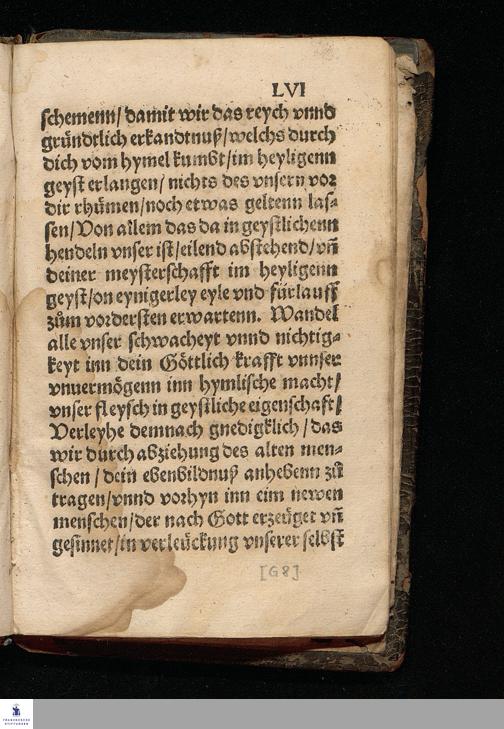 LVI
schemenn/ damit wir das reych vnnd
gründtlich erkandtnuß/ welchs durch
dich vom hymel kumbt/ im heyligenn
geyst erlangen/ nichts des vnsern vor
dir rhümen/ noch etwas geltenn las-
sen/ Von allem das da in geystlichenn
hendeln vnser ist/ eilend abstehend/ vñ
deiner meysterschafft im heyligenn
geyst/ on eynigerley eyle vnd fürlauff
zům vordersten erwartenn. Wandel
alle vnser schwacheyt vnnd nichtig-
keyt inn dein Göttlich krafft vnnser
vnuermögenn inn hymlische macht/
vnser fleysch in geystliche eigenschaft/
Verleyhe demnach gnedigklich/ das
wir durch abziehung des alten men-
schen/ dein ebenbildnuß anhebenn zů
tragen/ vnnd vorhyn inn eim newen
menschen/ der nach Gott erzeüget vñ
gesinnet/ in verleückung vnserer selbst
[G8]
FRANCKESCHE
STIFTUNGEN